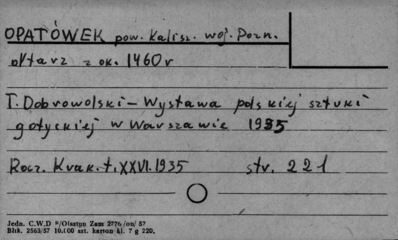 OPATÓWEK pow. Kalisz. woj. Pozn.
ołtarz z ok. 1460 r
T. Dobrowolski – Wystawa polskiej sztuki
gotyckiej w Warszawie 1935
Rocz. Krak. t. XXVI. 1935 str. 221
Jedn. C.W.D Olsztyn Zam 2776/on/57
Bhk. 2563/57 10.000 szt. karton kl. 7 g 220.